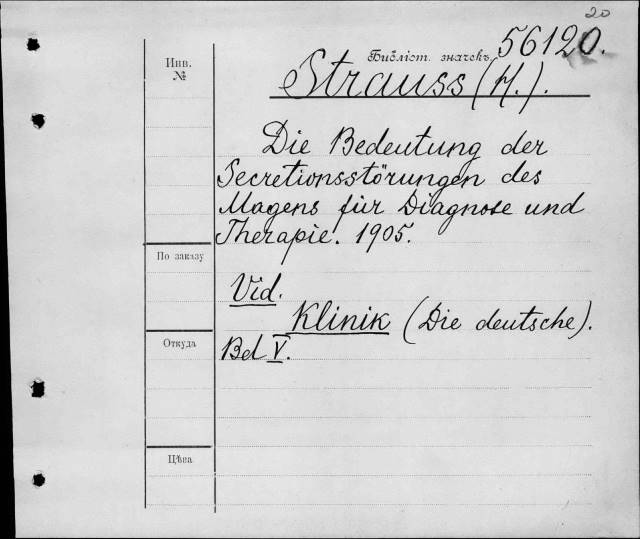 20
Библіот. значекъ 56120.
Инв.
№
Strauss (H.).
Die Bedeutung der
Secretionsstörungen des
Magens für Diagnose und
Therapie. 1905.
По заказу
Vid.
Klinik (Die deutsche).
Откуда
Bd V.
Цѣна